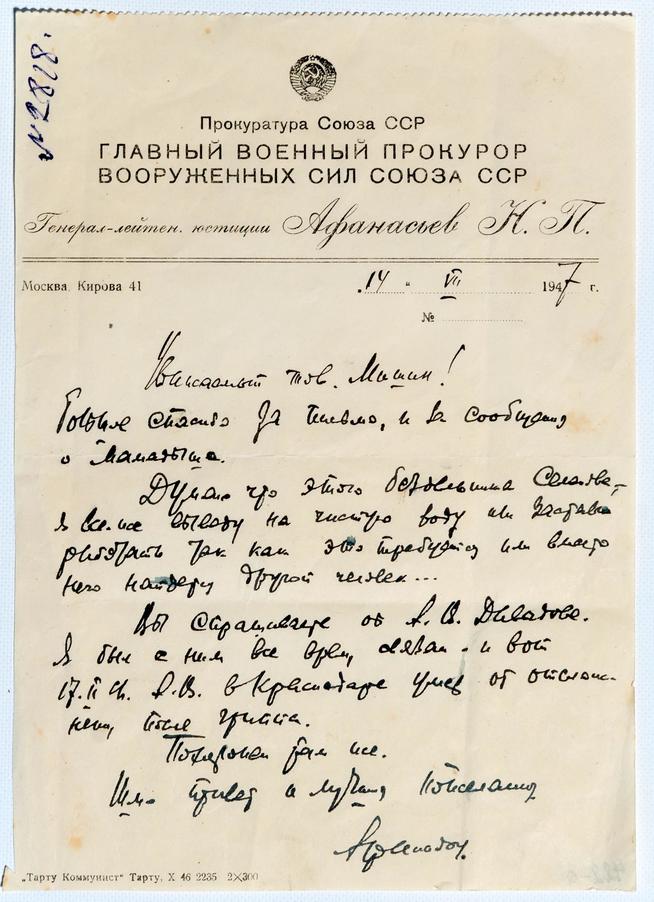 №2818.
Прокуратура Союза ССР
ГЛАВНЫЙ ВОЕННЫЙ ПРОКУРОР
ВООРУЖЕННЫХ СИЛ СОЮЗА ССР
Генерал-лейтен. юстиции Афанасьев Н. П.
Москва, Кирова 41 „14 " VII 1947 г.
№
Уважаемый тов. Мишин!
Большое спасибо за письмо, и за сообщения
о
Думаю что этого бездельника
я все же выведу на чистую воду или заставлю
работать так как это требуется или вместо
него найдут другой человек...
Вы спрашиваете об А. В.
Я был с ним все время связан и вот
17. II с.г. А. В. в Краснодаре умер от
после гриппа.
Похоронен там же.
Шлю привет и лучшие пожелания
Афанасьев
„Тарту Коммунист" Тарту, X 46 2235 2×300